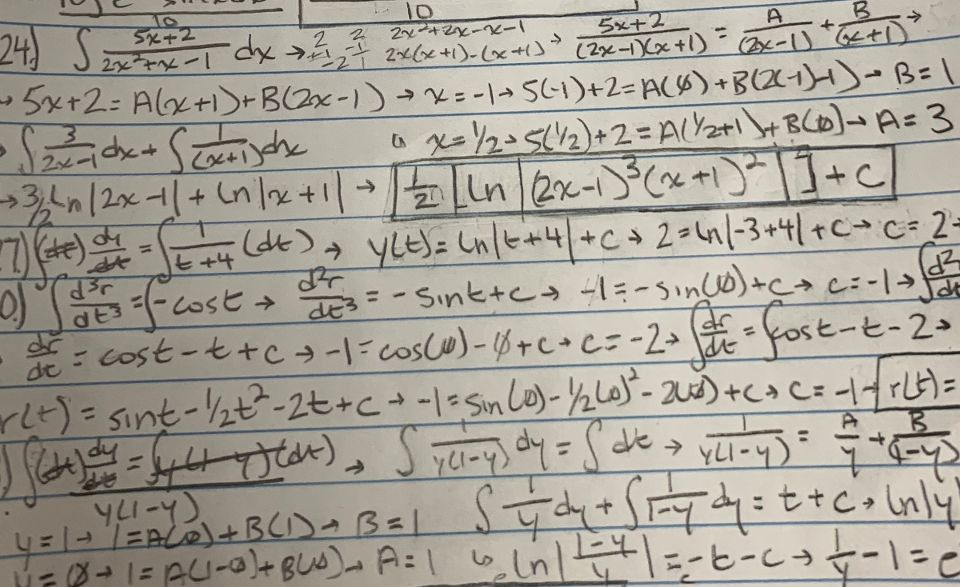 10 10
24.) ∫ (5x+2)/(2x²+x-1) dx → 2x²+2x-x-1 2x(x+1)-(x+1) → (5x+2)/((2x-1)(x+1)) = A/(2x-1) + B/(x+1) →
→ 5x+2 = A(x+1)+B(2x-1) → x=-1 → 5(-1)+2 = A(0)+B(2(-1)-1) → B=1
∫ 3/(2x-1) dx + ∫ 1/(x+1) dx x=1/2 → 5(1/2)+2 = A(1/2+1)+B(0) → A=3
→ 3/2 ln|2x-1| + ln|x+1| → 1/2 [ln|(2x-1)³(x+1)²|] + C
7.) ∫(dt) dy/dt = ∫ 1/(t+4) (dt) → y(t) = ln|t+4| + c → 2 = ln|-3+4| + c → c = 2
0.) ∫ d³r/dt³ = ∫ -cost → d²r/dt³ = -sint + c → -1 = -sin(0) + c → c = -1 → ∫ d²
dr/dt = cost - t + c → -1 = cos(0) - 0 + c → c = -2 → ∫ dr/dt = ∫ cost - t - 2 →
r(t) = sint - 1/2t² - 2t + c → -1 = sin(0) - 1/2(0)² - 2(0) + c → c = -1 → r(t) =
) ∫(dt) dy/dt = ∫ y(1-y) (dt) → ∫ 1/(y(1-y)) dy = ∫ dt → 1/(y(1-y)) = A/y + B/(1-y)
y(1-y)
y=1 → 1 = A(0) + B(1) → B=1 ∫ 1/y dy + ∫ 1/(1-y) dy = t + c → ln|y
y=0 → 1 = A(1-0) + B(0) → A=1 ln|(1-y)/y| = -t - c → 1/y - 1 = e